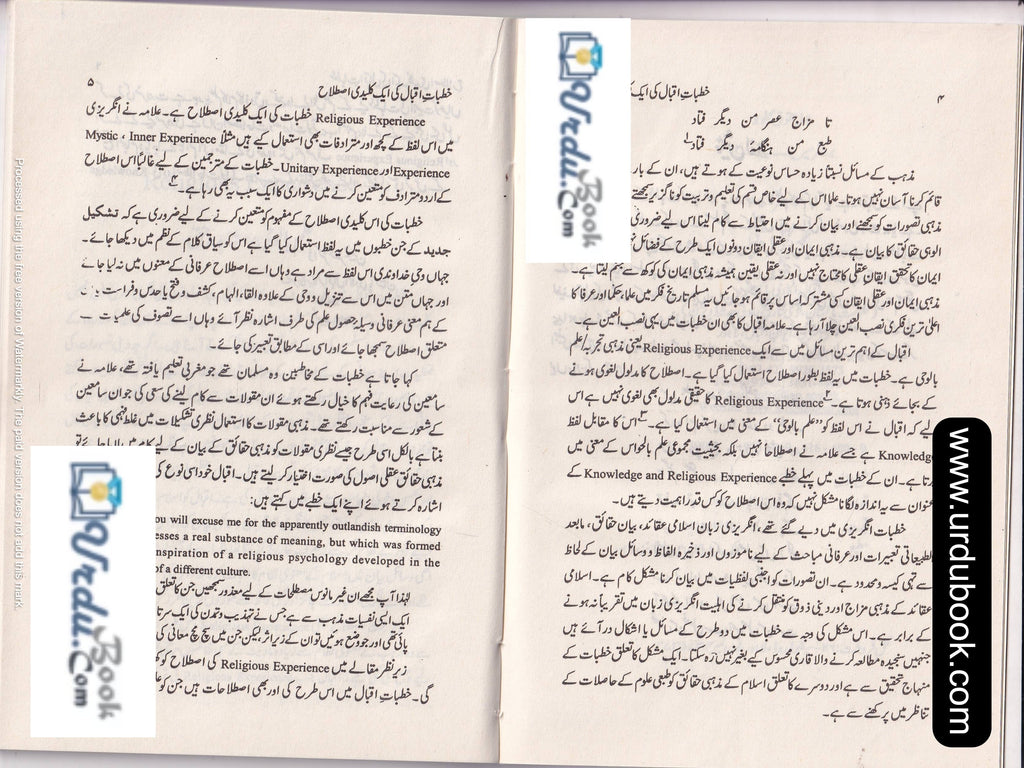 ۴
خطبات اقبال کی ایک
تا مزاج عصر من دیگر فتاد
طبع من ہنگامۂ دیگر فتاد
مذہب کے مسائل نسبتاً زیادہ حساس نوعیت کے ہوتے ہیں، ان کے بار
قائم کرنا آسان نہیں ہوتا۔ علما اس کے لیے خاص قسم کی تعلیم و تربیت کو ناگزیر سمجھتے
مذہبی تصورات کو سمجھنے اور بیان کرنے میں احتیاط سے کام لینا اس لیے ضروری
الوہی حقائق کا بیان ہے۔ مذہبی ایمان اور عقلی ایقان دونوں ایک طرح کے فضائل
ایمان کا تحقق ایقانِ عقلی کا محتاج نہیں اور نہ عقلی یقین ہمیشہ مذہبی ایمان کی کوکھ سے جنم لیتا ہے۔
مذہبی ایمان اور عقلی ایقان کسی مشترکہ اساس پر قائم ہو جائیں یہ مسلم تاریخ فکر میں علما، حکما اور عرفا کا
اعلیٰ ترین فکری نصب العین چلا آ رہا ہے۔ علامہ اقبال کا بھی ان خطبات میں یہی نصب العین ہے۔
اقبال کے اہم ترین مسائل میں سے ایک Religious Experience یعنی مذہبی تجربہ/علم
بالوحی ہے۔ خطبات میں یہ لفظ بطور اصطلاح استعمال کیا گیا ہے۔ اصطلاح کا مدلول لغوی ہونے
کے بجائے ذہنی ہوتا ہے۔ Religious Experience کا حقیقی مدلول بھی لغوی نہیں ہے اس
لیے کہ اقبال نے اس لفظ کو "علم بالوحی" کے معنی میں استعمال کیا ہے۔ اس کا مقابل لفظ
Knowledge ہے جسے علامہ نے اصطلاحاً نہیں بلکہ بحیثیت مجموعی علم بالحواس کے معنی میں
ہے۔ ان کے خطبات میں پہلے خطبے Knowledge and Religious Experience کے
عنوان سے یہ اندازہ لگانا مشکل نہیں کہ وہ اس اصطلاح کو کس قدر اہمیت دیتے ہیں۔
خطبات انگریزی میں دیے گئے تھے، انگریزی زبان اسلامی عقائد، بیان حقائق، مابعد
الطبیعاتی تعبیرات اور عرفانی مباحث کے لیے ناموزوں اور ذخیرہ الفاظ و وسائل بیان کے لحاظ
سے تہی کیسہ و محدود ہے۔ ان تصورات کو اجنبی لفظیات میں بیان کرنا مشکل کام ہے۔ اسلامی
عقائد کے مذہبی مزاج اور دینی ذوق کو منتقل کرنے کی اہلیت انگریزی زبان میں تقریباً نہ ہونے
کے برابر ہے۔ اس مشکل کی وجہ سے خطبات میں دو طرح کے مسائل یا اشکال در آئے ہیں
جنہیں سنجیدہ مطالعہ کرنے والا قاری محسوس کیے بغیر نہیں رہ سکتا۔ ایک مشکل کا تعلق خطبات کے
منہاج تحقیق سے ہے اور دوسرے کا تعلق اسلام کے مذہبی حقائق کو طبعی علوم کے حاصلات کے
تناظر میں پرکھنے سے ہے۔
۵
خطبات اقبال کی ایک کلیدی اصطلاح
Religious Experience خطبات کی ایک کلیدی اصطلاح ہے۔ علامہ نے انگریزی
میں اس لفظ کے کچھ اور مترادفات بھی استعمال کیے ہیں مثلاً Mystic ، Inner Experinece
Experience اور Unitary Experience۔ خطبات کے مترجمین کے لیے غالباً اس اصطلاح
کے اردو مترادف کو متعین کرنے میں دشواری کا ایک سبب یہ بھی رہا ہے۔
خطبات کی اس کلیدی اصطلاح کے مفہوم کو متعین کرنے کے لیے ضروری ہے کہ تشکیل
جدید کے جن خطبوں میں یہ لفظ استعمال کیا گیا ہے اس کو سیاق کلام کے نظم میں دیکھا جائے۔
جہاں وحی خداوندی اس لفظ سے مراد ہے وہاں اسے اصطلاح عرفانی کے معنوں میں نہ لیا جائے
اور جہاں متن میں اس سے تنزیل وحی کے علاوہ القا، الہام، کشف و فتح یا حدس و فراست
کے ہم معنی عرفانی وسیلہ حصول علم کی طرف اشارہ نظر آئے وہاں اسے تصوف کی علمیات سے
متعلق اصطلاح سمجھا جائے اور اسی کے مطابق تعبیر کی جائے۔
کہا جاتا ہے خطبات کے مخاطبین وہ مسلمان تھے جو مغربی تعلیم یافتہ تھے، علامہ نے
سامعین کی رعایت فہم کا خیال رکھتے ہوئے ان مقولات سے کام لینے کی سعی کی جو ان سامعین
کے شعور سے مناسبت رکھتے تھے۔ مذہبی مقولات کا استعمال نظری تشکیلات میں غلط فہمی کا باعث
بنتا ہے بالکل اسی طرح جیسے نظری مقولات کو مذہبی حقائق کے بیان کے لیے کام میں لایا جائے تو
مذہبی حقائق عقلی اصول کی صورت اختیار کر لیتے ہیں۔ اقبال خود اسی نوع کی
اشارہ کرتے ہوئے اپنے ایک خطبے میں کہتے ہیں:
ou will excuse me for the apparently outlandish terminology
esses a real substance of meaning, but which was formed
nspiration of a religious psychology developed in the
of a different culture.
لہٰذا آپ مجھے ان غیر مانوس مصطلحات کے لیے معذور سمجھیں جن کا تعلق
ایک ایسی نفسیات مذہب سے ہے جس نے تہذیب و تمدن کی ایک
پائی تھی اور جو وضع ہوئیں تو ان کے زیر اثر لیکن جن میں سچ مچ معانی کی
زیر نظر مقالے میں Religious Experience کی اصطلاح کو
گی۔ خطبات اقبال میں اس طرح کی اور بھی اصطلاحات ہیں جن کو
Urdu Book.Com
Urdu Book.Com
www.urdubook.com
Processed using the free version of Watermarkly. The paid version does not add this mark.